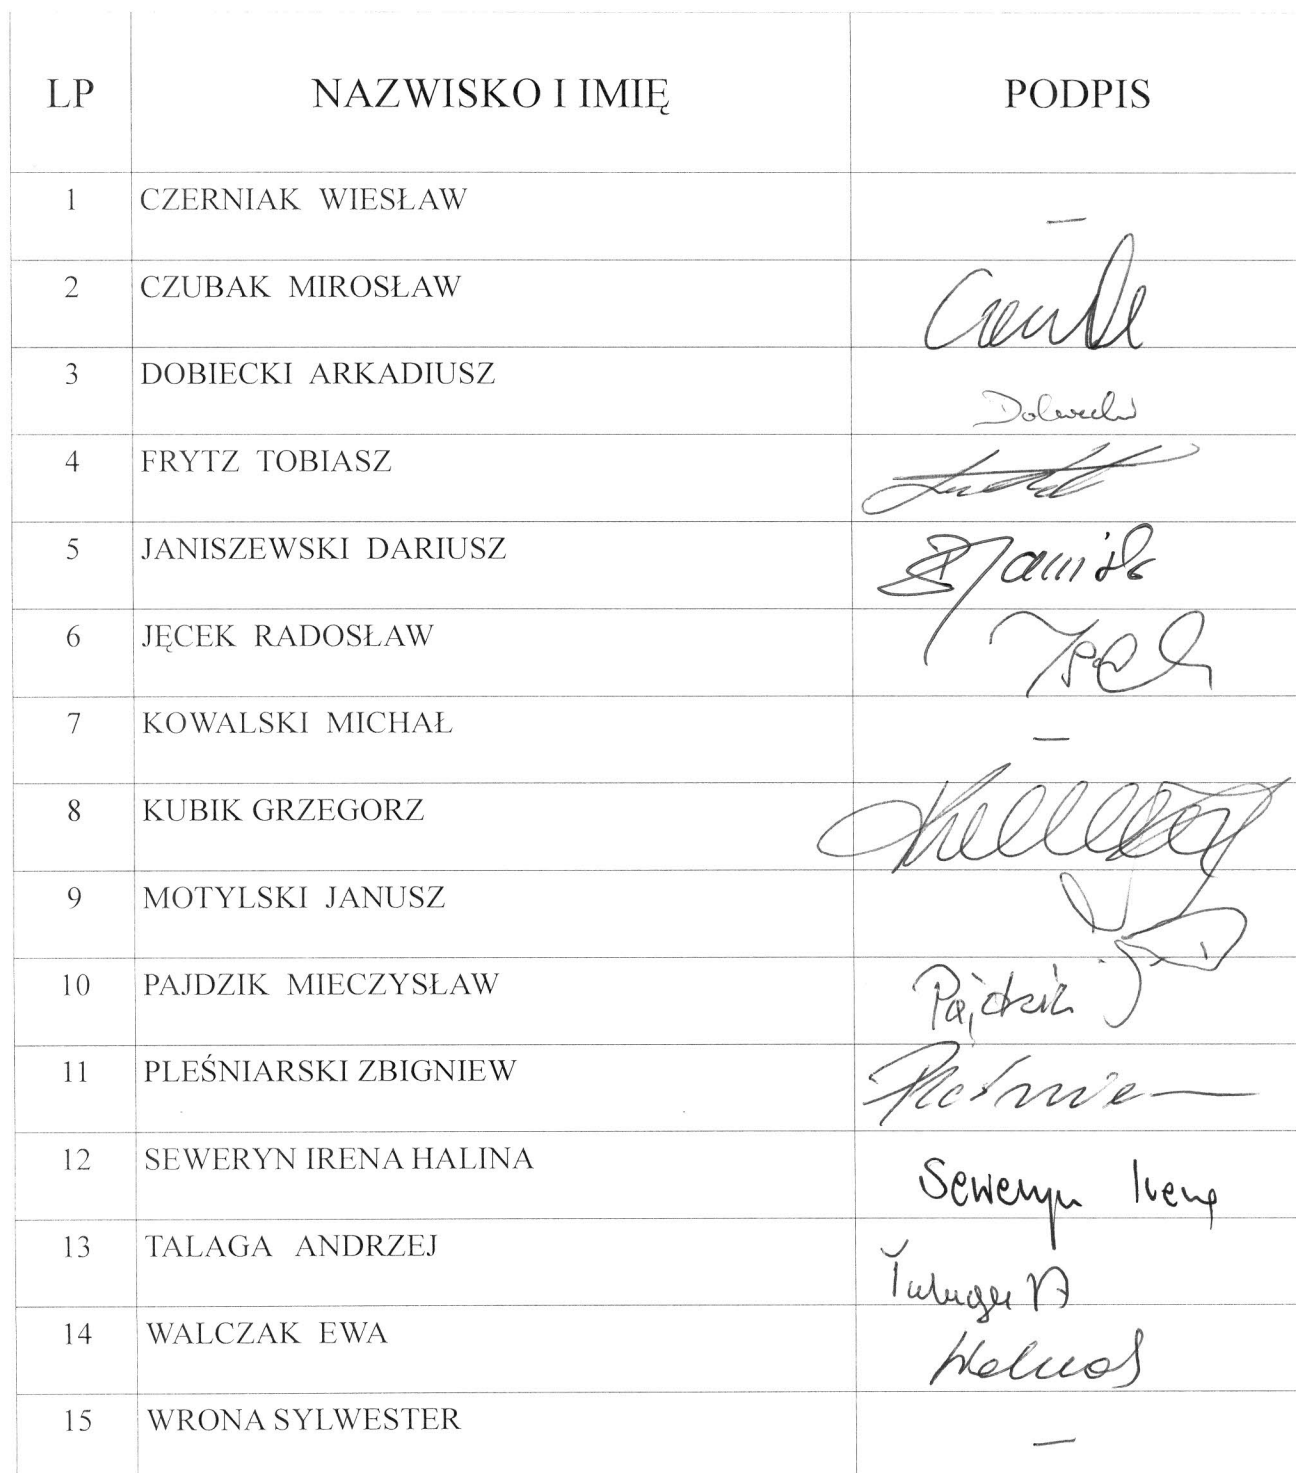 LP NAZWISKO I IMIĘ PODPIS
1 CZERNIAK WIESŁAW —
2 CZUBAK MIROSŁAW
3 DOBIECKI ARKADIUSZ
4 FRYTZ TOBIASZ
5 JANISZEWSKI DARIUSZ
6 JĘCEK RADOSŁAW
7 KOWALSKI MICHAŁ —
8 KUBIK GRZEGORZ
9 MOTYLSKI JANUSZ
10 PAJDZIK MIECZYSŁAW Pajdzik
11 PLEŚNIARSKI ZBIGNIEW
12 SEWERYN IRENA HALINA Seweryn Irena
13 TALAGA ANDRZEJ Talaga A
14 WALCZAK EWA
15 WRONA SYLWESTER —